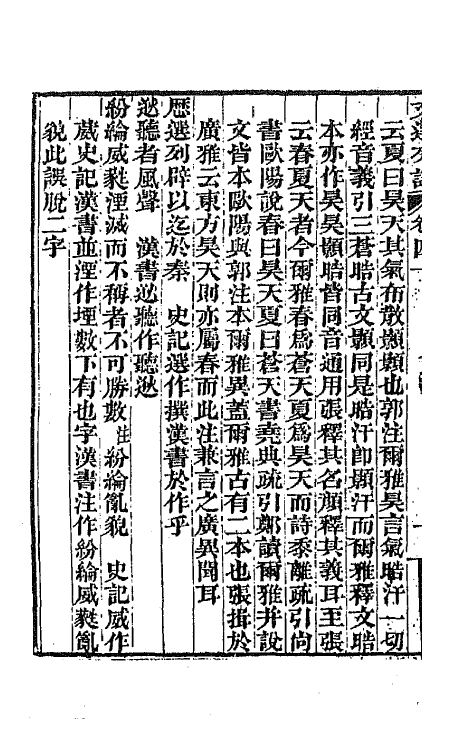 云夏曰昊天其氣布散顥顥也郭注爾雅昊言氣晧汗一切
經音義引三蒼晧古文顥同是晧汗卽顥汗而爾雅釋文晧
本亦作昊昊顥晧皆同音通用張釋其名顏釋其義耳至張
云春夏天者今爾雅春爲蒼天夏爲昊天而詩黍離疏引尚
書歐陽說春曰昊天夏曰蒼天書堯典疏引鄭讀爾雅并說
文皆本歐陽與郭注本爾雅異蓋爾雅古有二本也張揖於
廣雅云東方昊天則亦屬春而此注兼言之廣異聞耳
歷選列辟以迄於秦 史記選作撰漢書於作乎
逖聽者風聲 漢書逖聽作聽逖
紛綸威蕤湮滅而不稱者不可勝數 注紛綸亂貌 史記威作
葳史記漢書並湮作堙數下有也字漢書注作紛綸威蕤亂
貌此誤脫二字